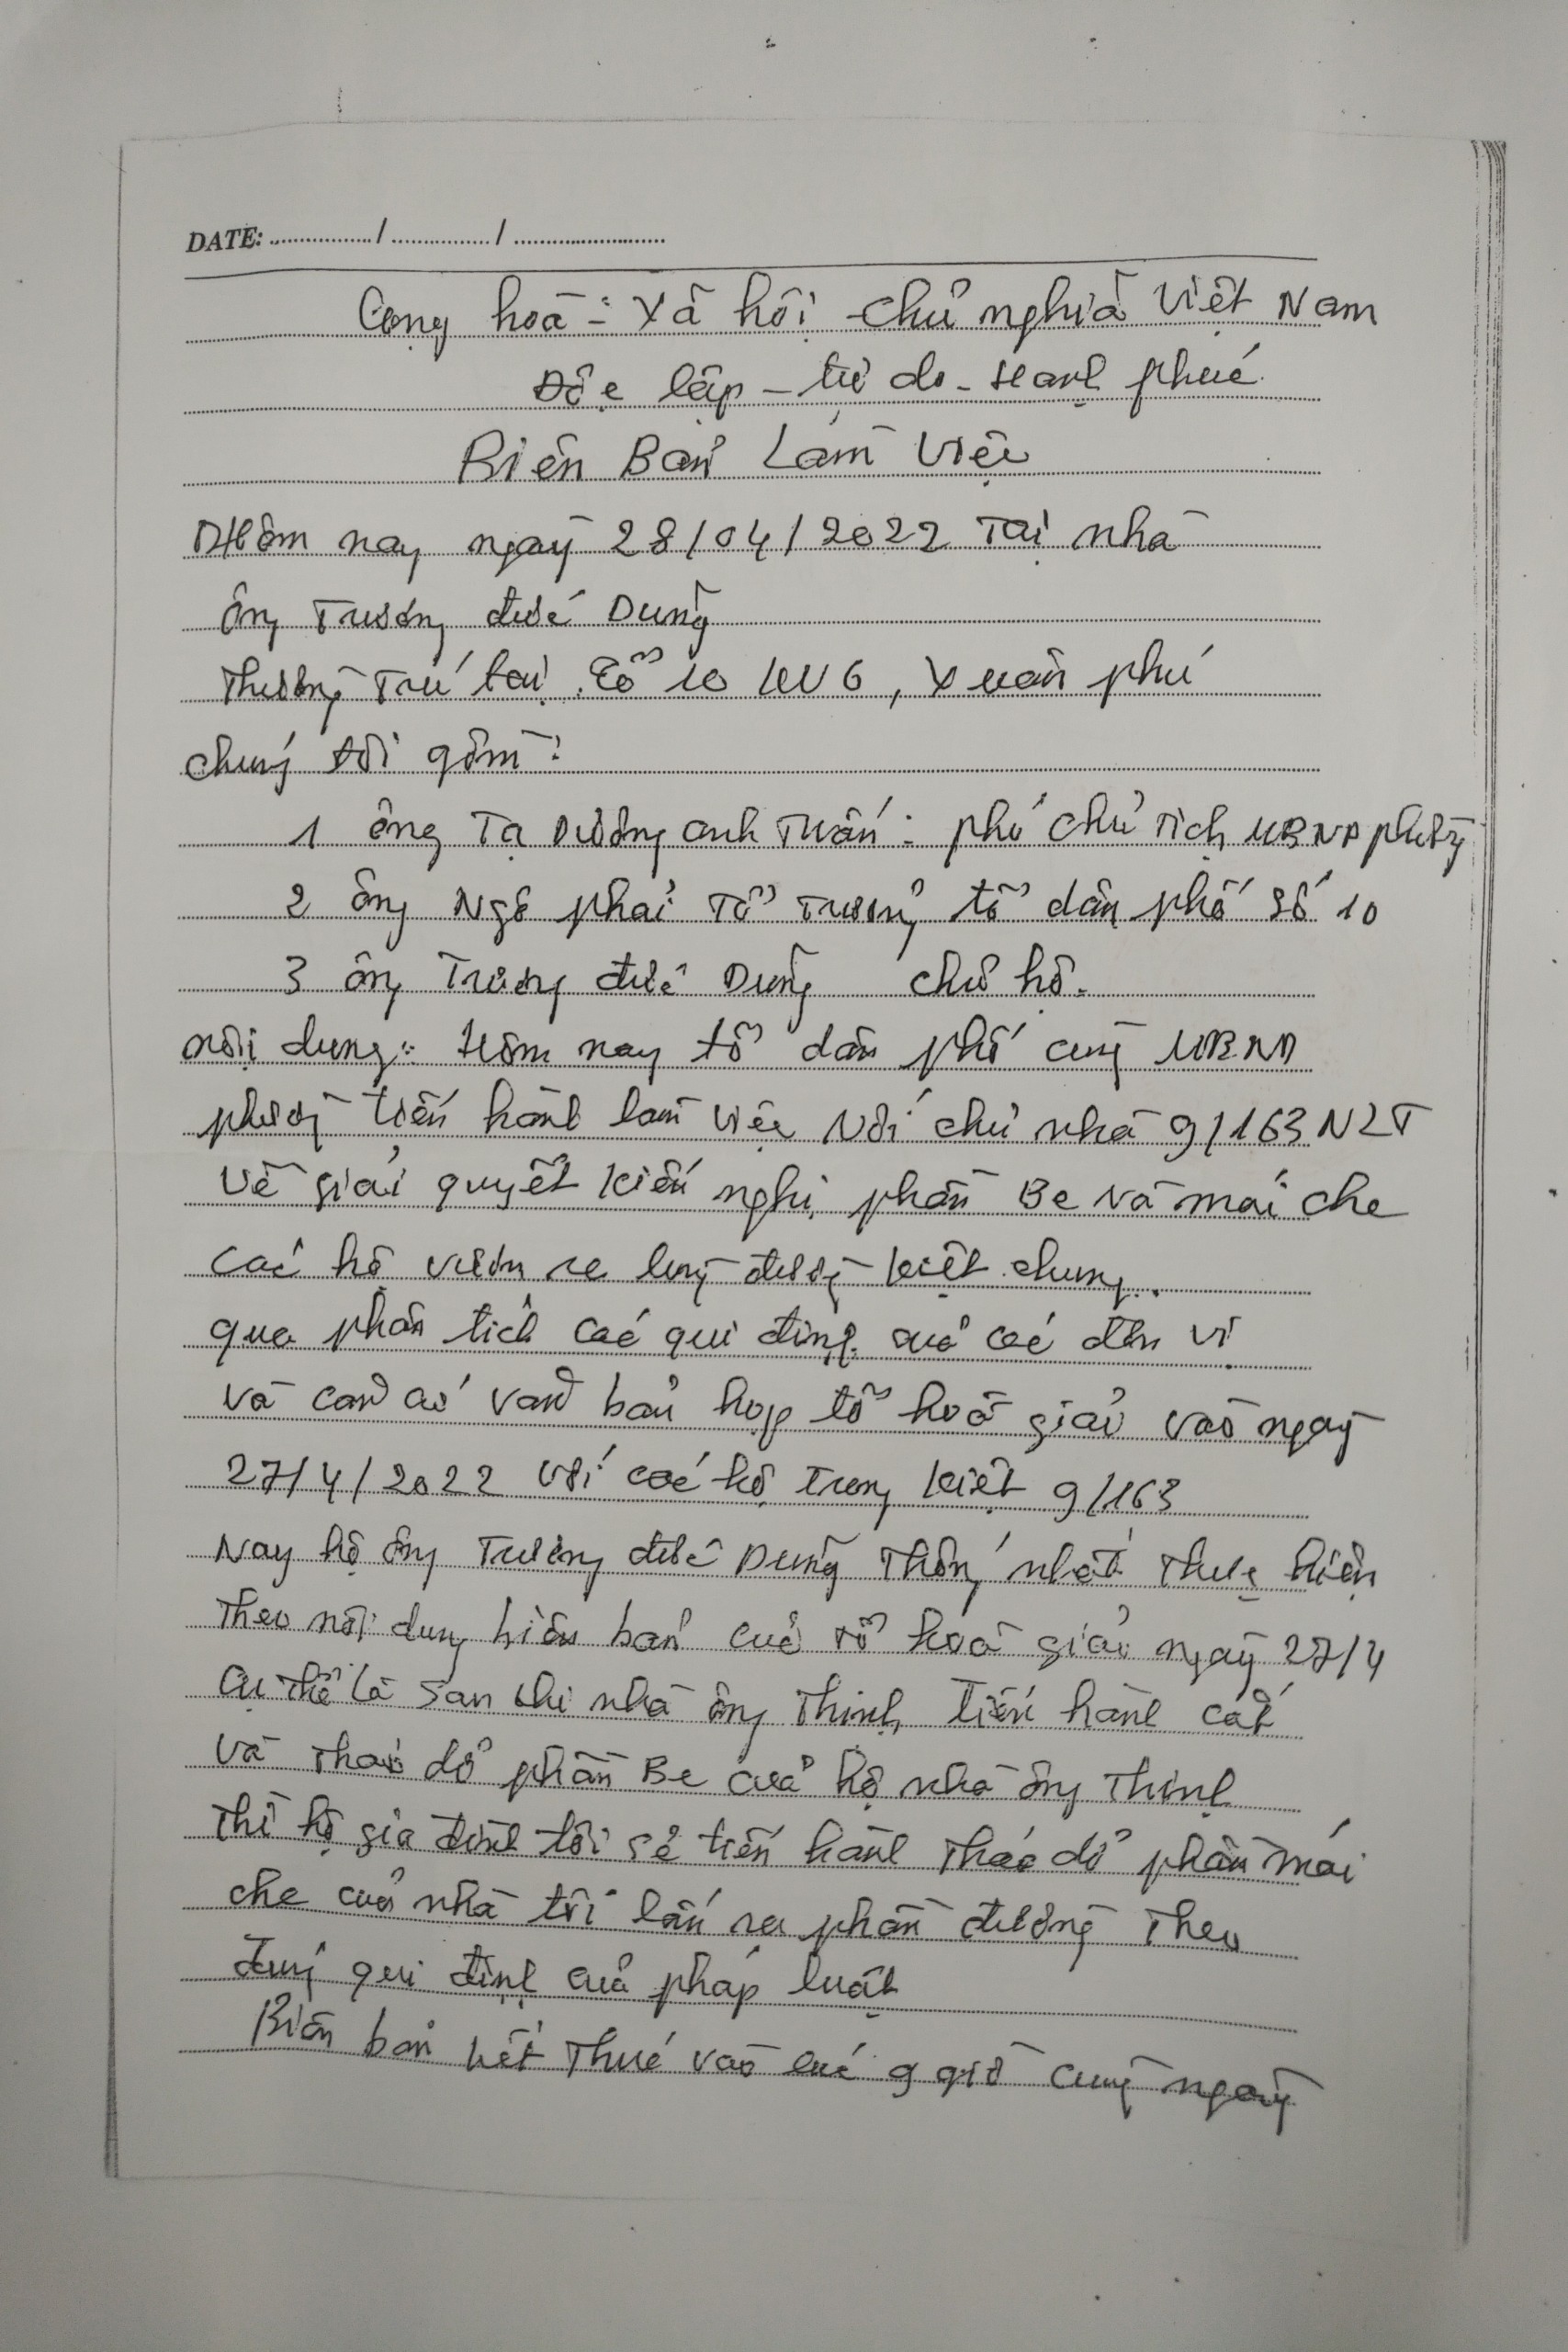 DATE: ............... / ............... / .......................
Cộng hoà - Xã hội chủ nghĩa Việt Nam
Độc lập - tự do - Hạnh phúc
Biên Bản Làm Việc
Hôm nay ngày 28/04/2022 Tại nhà
ông Trương đức Dũng
Thường Trú tại Tổ 10 KV6, Xuân phú
chúng tôi gồm:
1 ông Tạ Dương anh Tuấn: phó chủ Tịch UBND phường
2 ông Ngô phải Tổ Trưởng tổ dân phố số 10
3 ông Trương đức Dũng chủ hộ.
nội dung: Hôm nay tổ dân phố cùng UBND
phường tiến hành làm việc với chủ nhà 9/163 NLT
về giải quyết kiến nghị phần Be và mái che
các hộ vươn ra lòng đường kiệt chung.
qua phân tích các qui định của các đơn vị
và căn cứ văn bản họp tổ hoà giải vào ngày
27/4/2022 với các hộ trong kiệt 9/163
Nay hộ ông Trương đức Dũng Thống nhất Thực hiện
Theo nội dung biên bản của tổ hoà giải ngày 27/4
Cụ thể là sau khi nhà ông Thịnh Tiến hành cắt
và Tháo dở phần Be của hộ nhà ông Thịnh
Thì hộ gia đình tôi sẽ tiến hành Tháo dở phần mái
che của nhà tôi lấn ra phần đường Theo
đúng qui định của pháp luật
Biên bản kết Thúc vào lúc 9 giờ cùng ngày